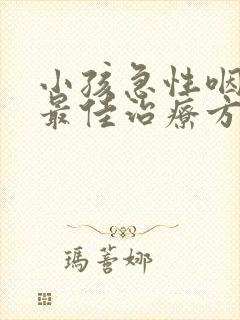 小孩急性咽
最佳治療方
瑪薈娜